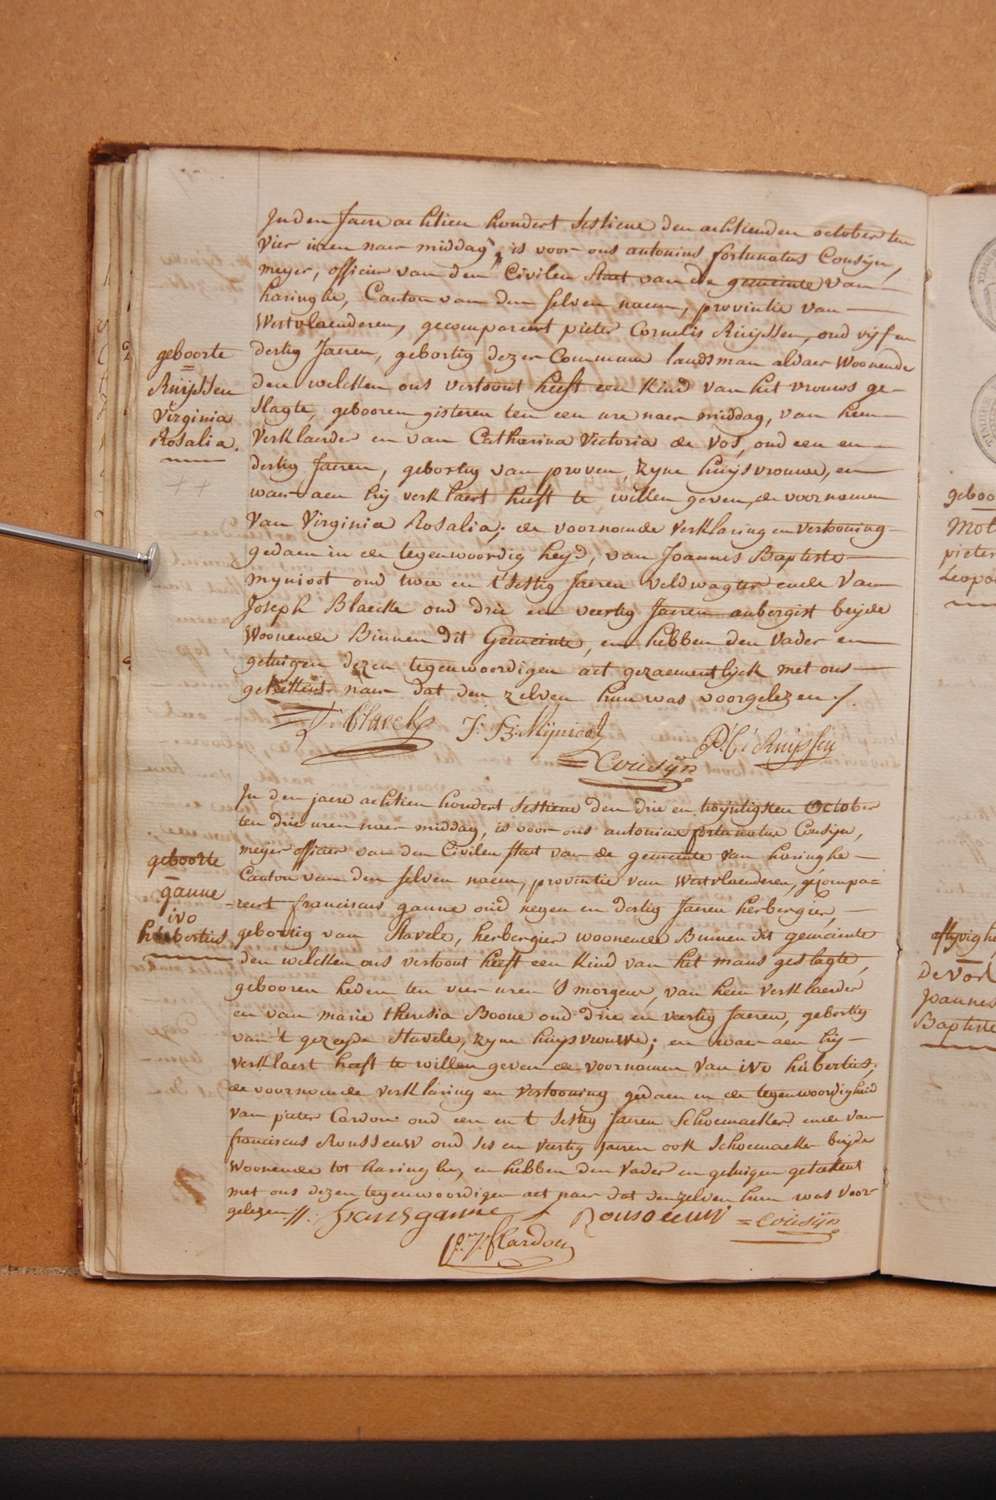 In den Jaere achtien hondert sestiene den achtienden october ten
vier uren naer middag, is voor ons antonius fortunatus Cousijn,
meyer, officier van den Civilen staat van de gemeente van
haringhe, Canton van den selven naem, provintie van
Westvlaenderen, gecompareert pieter Cornelis Ruijssen, oud vijf en
geboorte
Ruijssen
Virginia
Rosalia.
dertig Jaeren, gebortig dezer Commune landsman aldaer Woonende
den welcken ons vertoont heeft een kind van het vrouws ge-
slagte, gebooren gisteren ten een ure naer middag, van hem
verklaerder en van Catharina Victoria de Vos, oud een en
dertig Jaeren, gebortig van proven, zyne huijsvrouwe, en
waer aen hij verklaert heeft te willen geven de voornamen
van Virginia Rosalia; de voornoemde verklaring en vertooning
gedaen in de tegenwoordigheyd, van Joannes Baptiste
mynioot oud twee en t'sestig Jaeren veldwagter ende van
Joseph Blaecke oud drie en veertig Jaeren aubergist beijde
Woonende Binnen dit Gemeente, en hebben den vader en
getuigen dezen tegenwoordigen act gezaementlijck met ons
geteekent naer dat den zelven hun was voorgelezen /.
J. Blaecke J: B: Mijnioot P: C: Ruijssen
Cousijn
In den jaere achtien hondert sestiene den drie en twijntigsten October
ten drie uren naer middag, is voor ons antonius fortunatus Cousijn,
meyer officier van den Civilen staat van de gemeente van haringhe
Canton van den selven naem, provintie van Westvlaenderen, gecompa=
geboorte
ganne
ivo
hubertus
reert franciscus ganne oud negen en dertig Jaeren herbergier,
gebortig van Stavele, herbergier woonende Binnen dit gemeente
den welcken ons vertoont heeft een kind van het mans geslagte,
gebooren heden ten vier uren 's morgens, van hem verklaerder
en van marie theresia Boone oud drie en veertig Jaeren, gebortig
van 't gezegde Stavele, zyne huijsvrouwe; en waer aen hij
verklaert heeft te willen geven de voornamen van ivo hubertus;
de voornoemde verklaring en vertooning gedaen in de tegenwoordigheid
van pieter Cardon oud een en t'sestig Jaeren Schoemaeker ende van
franciscus Rousseuw oud ses en veertig jaeren ook Schoemaeker beijde
Woonende tot haringhe, en hebben den vader en getuigen geteekent
met ons dezen tegenwoordigen act naer dat den zelven hun was voor
gelezen //. frans ganne Rousseeuw Cousijn
Cardon
geboo
Mol
pieter
Leopo
aflijvighe
de Vor
Joannes
Baptiste